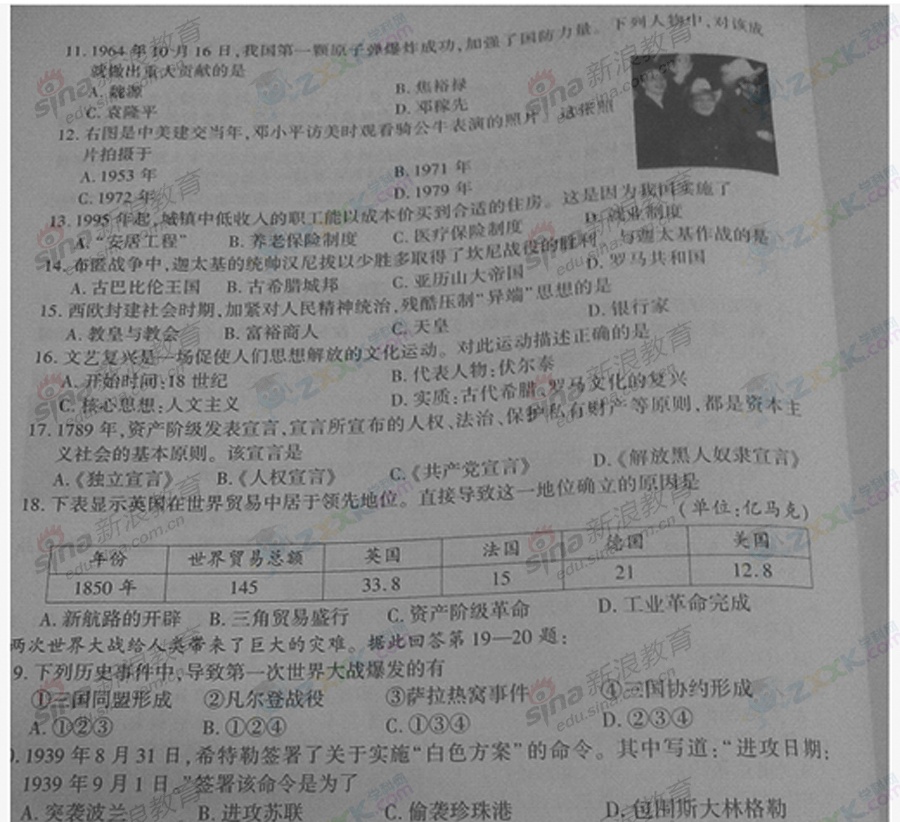 11. 1964年10月16日,我国第一颗原子弹爆炸成功,加强了国防力量。下列人物中,对该成
就做出重大贡献的是
A. 魏源 B. 焦裕禄
C. 袁隆平 D. 邓稼先
12. 右图是中美建交当年,邓小平访美时观看骑公牛表演的照片。这张照
片拍摄于
A. 1953年 B. 1971年
C. 1972年 D. 1979年
13. 1995年起,城镇中低收入的职工能以成本价买到合适的住房。这是因为我国实施了
A. “安居工程” B. 养老保险制度 C. 医疗保险制度 D. 就业制度
14. 布匿战争中,迦太基的统帅汉尼拔以少胜多取得了坎尼战役的胜利。与迦太基作战的是
A. 古巴比伦王国 B. 古希腊城邦 C. 亚历山大帝国 D. 罗马共和国
15. 西欧封建社会时期,加紧对人民精神统治,残酷压制“异端”思想的是
A. 教皇与教会 B. 富裕商人 C. 天皇 D. 银行家
16. 文艺复兴是一场促使人们思想解放的文化运动。对此运动描述正确的是
A. 开始时间:18世纪 B. 代表人物:伏尔泰
C. 核心思想:人文主义 D. 实质:古代希腊、罗马文化的复兴
17. 1789年,资产阶级发表宣言,宣言所宣布的人权、法治、保护私有财产等原则,都是资本主
义社会的基本原则。该宣言是
A.《独立宣言》 B.《人权宣言》 C.《共产党宣言》 D.《解放黑人奴隶宣言》
18. 下表显示英国在世界贸易中居于领先地位。直接导致这一地位确立的原因是
(单位:亿马克)
年份 世界贸易总额 英国 法国 德国 美国
1850年 145 33.8 15 21 12.8
A. 新航路的开辟 B. 三角贸易盛行 C. 资产阶级革命 D. 工业革命完成
两次世界大战给人类带来了巨大的灾难。据此回答第19—20题:
9. 下列历史事件中,导致第一次世界大战爆发的有
①三国同盟形成 ②凡尔登战役 ③萨拉热窝事件 ④三国协约形成
A. ①②③ B. ①②④ C. ①③④ D. ②③④
). 1939年8月31日,希特勒签署了关于实施“白色方案”的命令。其中写道:“进攻日期:
1939年9月1日。”签署该命令是为了
A. 突袭波兰 B. 进攻苏联 C. 偷袭珍珠港 D. 包围斯大林格勒
sina 新浪教育
edu.sina.com.cn